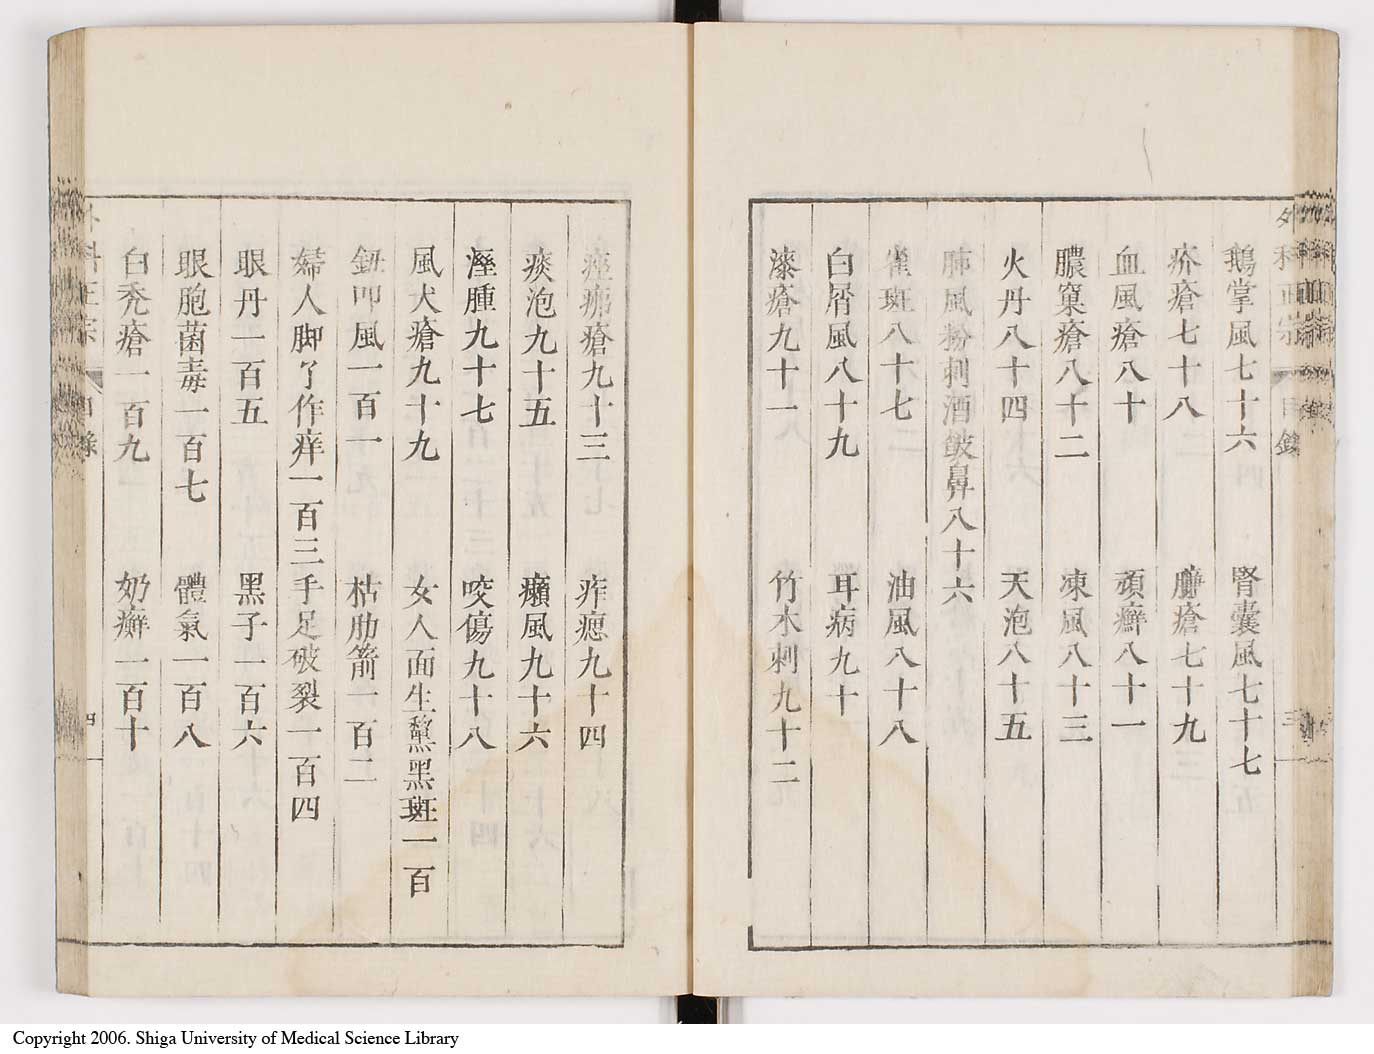 外科正宗 目錄 三
鵝掌風七十六 腎囊風七十七
疥瘡七十八 臁瘡七十九
血風瘡八十 頑癬八十一
膿窠瘡八十二 凍風八十三
火丹八十四 天泡八十五
肺風粉刺酒皶鼻八十六
雀斑八十七 油風八十八
白屑風八十九 耳病九十
漆瘡九十一 竹木刺九十二
痤痱瘡九十三 痄九十四
痰泡九十五 癩風九十六
溼腫九十七 咬傷九十八
風犬瘡九十九 女人面生黧黑斑一百
鈕叩風一百一 枯肋箭一百二
婦人脚了作痒一百三 手足破裂一百四
眼丹一百五 黑子一百六
眼胞菌毒一百七 體氣一百八
白禿瘡一百九 奶癬一百十
外科正宗 目錄 四
Copyright 2006. Shiga University of Medical Science Library